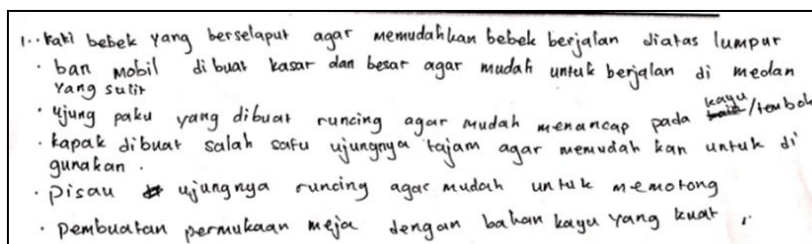 1.. Kaki bebek yang berselaput agar memudahkan bebek berjalan diatas lumpur
· ban mobil di buat kasar dan besar agar mudah untuk berjalan di medan
yang sulit
· Ujung paku yang dibuat runcing agar mudah menancap pada kayu/tembok
· kapak dibuat salah satu ujungnya tajam agar memudah kan untuk di
gunakan .
· pisau ujungnya runcing agar mudah untuk memotong
· pembuatan permukaan meja dengan bahan kayu yang kuat